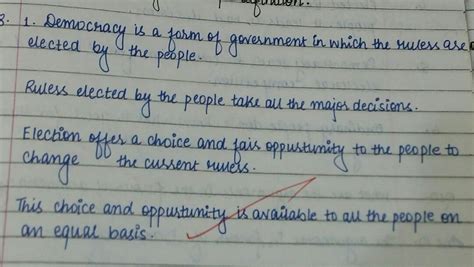 3. 1. Democracy is a form of government in which the rulers are
elected by the people.
Rulers elected by the people take all the major decisions.
Election offers a choice and fair oppurtunity to the people to
change the current rulers.
This choice and oppurtunity is available to all the people on
an equal basis.